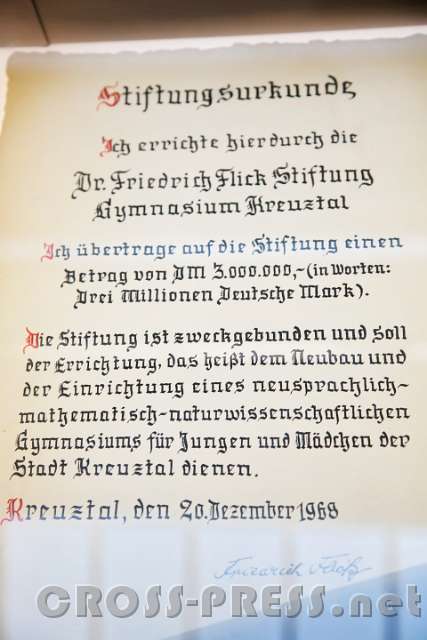 Stiftungsurkunde
Ich errichte hierdurch die
Dr. Friedrich Flick Stiftung
Gymnasium Kreuztal
Ich übertrage auf die Stiftung einen
Betrag von DM 3.000.000,- (in Worten:
Drei Millionen Deutsche Mark).
Die Stiftung ist zweckgebunden und soll
der Errichtung, das heißt dem Neubau und
der Einrichtung eines neusprachlich-
mathematisch-naturwissenschaftlichen
Gymnasiums für Jungen und Mädchen der
Stadt Kreuztal dienen.
Kreuztal, den 20. Dezember 1968
Friedrich Flick
CROSS-PRESS.net